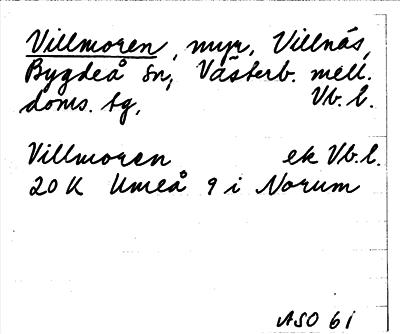 Villmoren, myr, Villnäs,
Bygdeå sn, Västerb. mell.
doms. tg, Vb. l.
Villmoren ek Vb. l.
20 K Umeå 9 i Norum
ASO 61